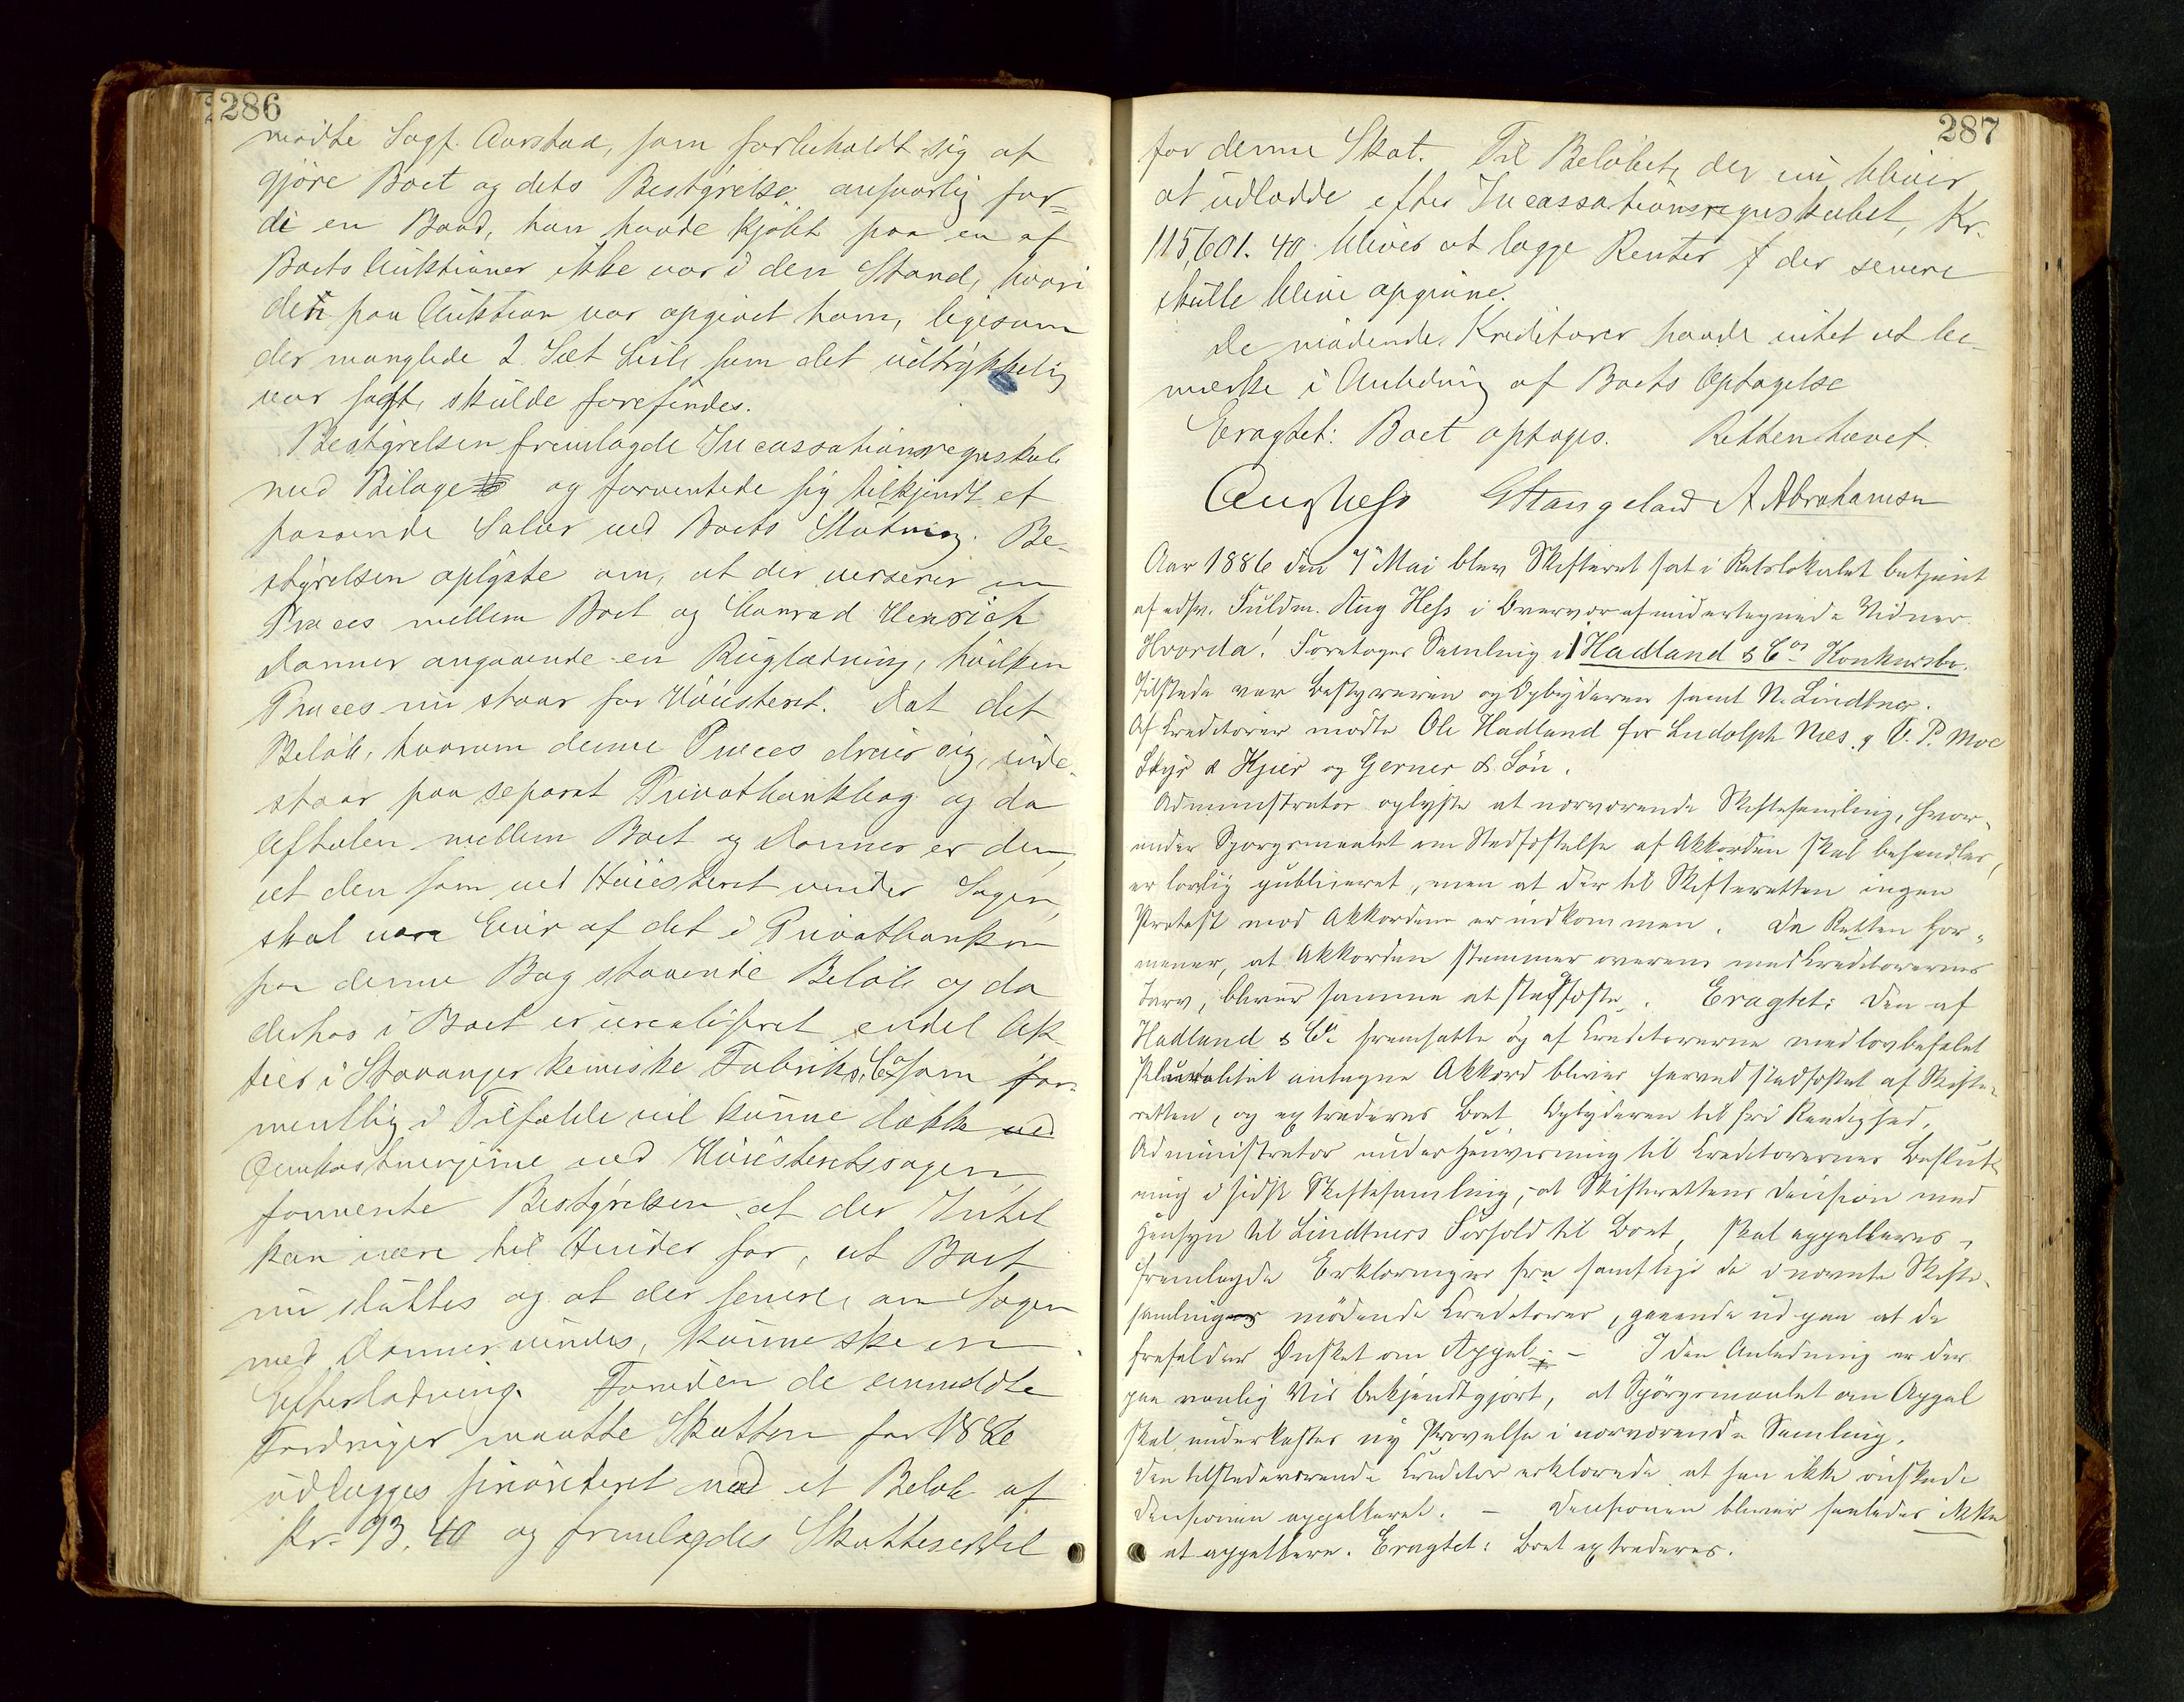 286
mødte Sagf. Aarstad, som forbeholdt sig at
gjøre Boet og dets Bestyrelse ansvarlig for-
di en Baad, han havde kjøbt paa en af
Boets Auktioner ikke var i den Stand, hvori
den paa Auktion var opgivet ham, ligesom
der manglede 2 Sæt Seil, som det udtrykkelig
var sagt, skulde forefindes.
Bestyrelsen fremlagde Incassationsregnskab
med Bilage og forventede sig tilkjendt et
passende Salær ved Boets Slutning. Be-
styrelsen oplyste om, at der verserer en
Proces mellem Boet og Conrad Henrich
Donner angaaende en Rugladning, hvilken
Proces nu staar for Höiesteret. Dat det
Beløb, hvorom denne Proces dreier sig, inde-
staar paa separat Privatbankbog og da
Aftalen mellem Boet og Donner er den,
at den som ved Höiesteret vinder Sagen,
skal være Eier af det i Privatbanken
paa denne Bog staaende Beløb og da
derhos i Boet er urealiseret endel Ak-
tier i Stavanger kemiske Fabriks Co som for-
mentlig i Tilfælde vil kunne dække
Omkostningerne ved Höiesteretssagen,
formente Bestyrelsen at der Intet
kan være til Hinder for, at Boet
nu sluttes og at der senere, om Sagen
med Donner vindes, kunne ske en
Efterlodning. Foruden de anmeldte
Fordringer maatte Skatten for 1886
udlægges prioriteret med et Beløb af
Kr. 93.40 og fremlagdes Skatteseddel
287
for denne Skat. Til Beløbet, der nu bliver
at udlodde efter Incassationsregnskabet, Kr.
115,601.40 bliver at lægge Renter der senere
skulle blive opgivne.
De mødende Kreditorer havde intet at be-
mærke i Anledning af Boets Optagelse
Eragtet: Boet optages. Retten hævet.
Aug Hess G Stangeland A Abrahamsen
Aar 1886 den 7 Mai blev Skifteret sat i Retslokalet betjent
af edsv. Fuldm. Aug Hess i Overvær af undertegnede Vidner.
Hvorda! Foretoges Samling i Hadland & Cos Konkursbo.
Tilstede var Bestyreren og Opbyderen samt N. Lindtner.
Af Creditorer mødte Ole Hadland for Ludolph Næs, V. P. Moe
& Kjær og Gerner & Søn.
Administrator oplyste at nærværende Skiftesamling, hvor-
under Spørgsmaalet om Stadfæstelse af Akkorden skal behandles,
er lovlig publiceret, men at der til Skifteretten ingen
Protest mod Akkorden er indkommen. Da Retten for-
mener, at Akkorden stemmer overens med Creditorernes
Tarv, bliver samme at stadfæste. Eragtet: Den af
Hadland & Co fremsatte og af Creditorerne med lovbefalet
Pluralitet antagne Akkord bliver herved stadfæstet af Skifte-
retten, og extraderes Boet Opbyderen til fri Raadighed.
Administrator under Henvisning til Creditorernes Beslut-
ning i sidste Skiftesamling, at Skifterettens Decision med
Hensyn til Lindtners Forhold til Boet, skal appelleres,
fremlagde Erklæringer fra samtlige de i nævnte Skifte-
samling mødende Creditorer, gaaende ud paa at de
frafalder Ønsket om Appel. – I den Anledning er der
paa vanlig Vis bekjendtgjort, at Spørgsmaalet om Appel
skal underkastes ny Prøvelse i nærværende Samling.
Den tilstedeværende Creditor erklærede at han ikke ønskede
Decisionen appelleret. – Decisionen bliver saaledes ikke
at appellere. Eragtet: Boet extraderes.